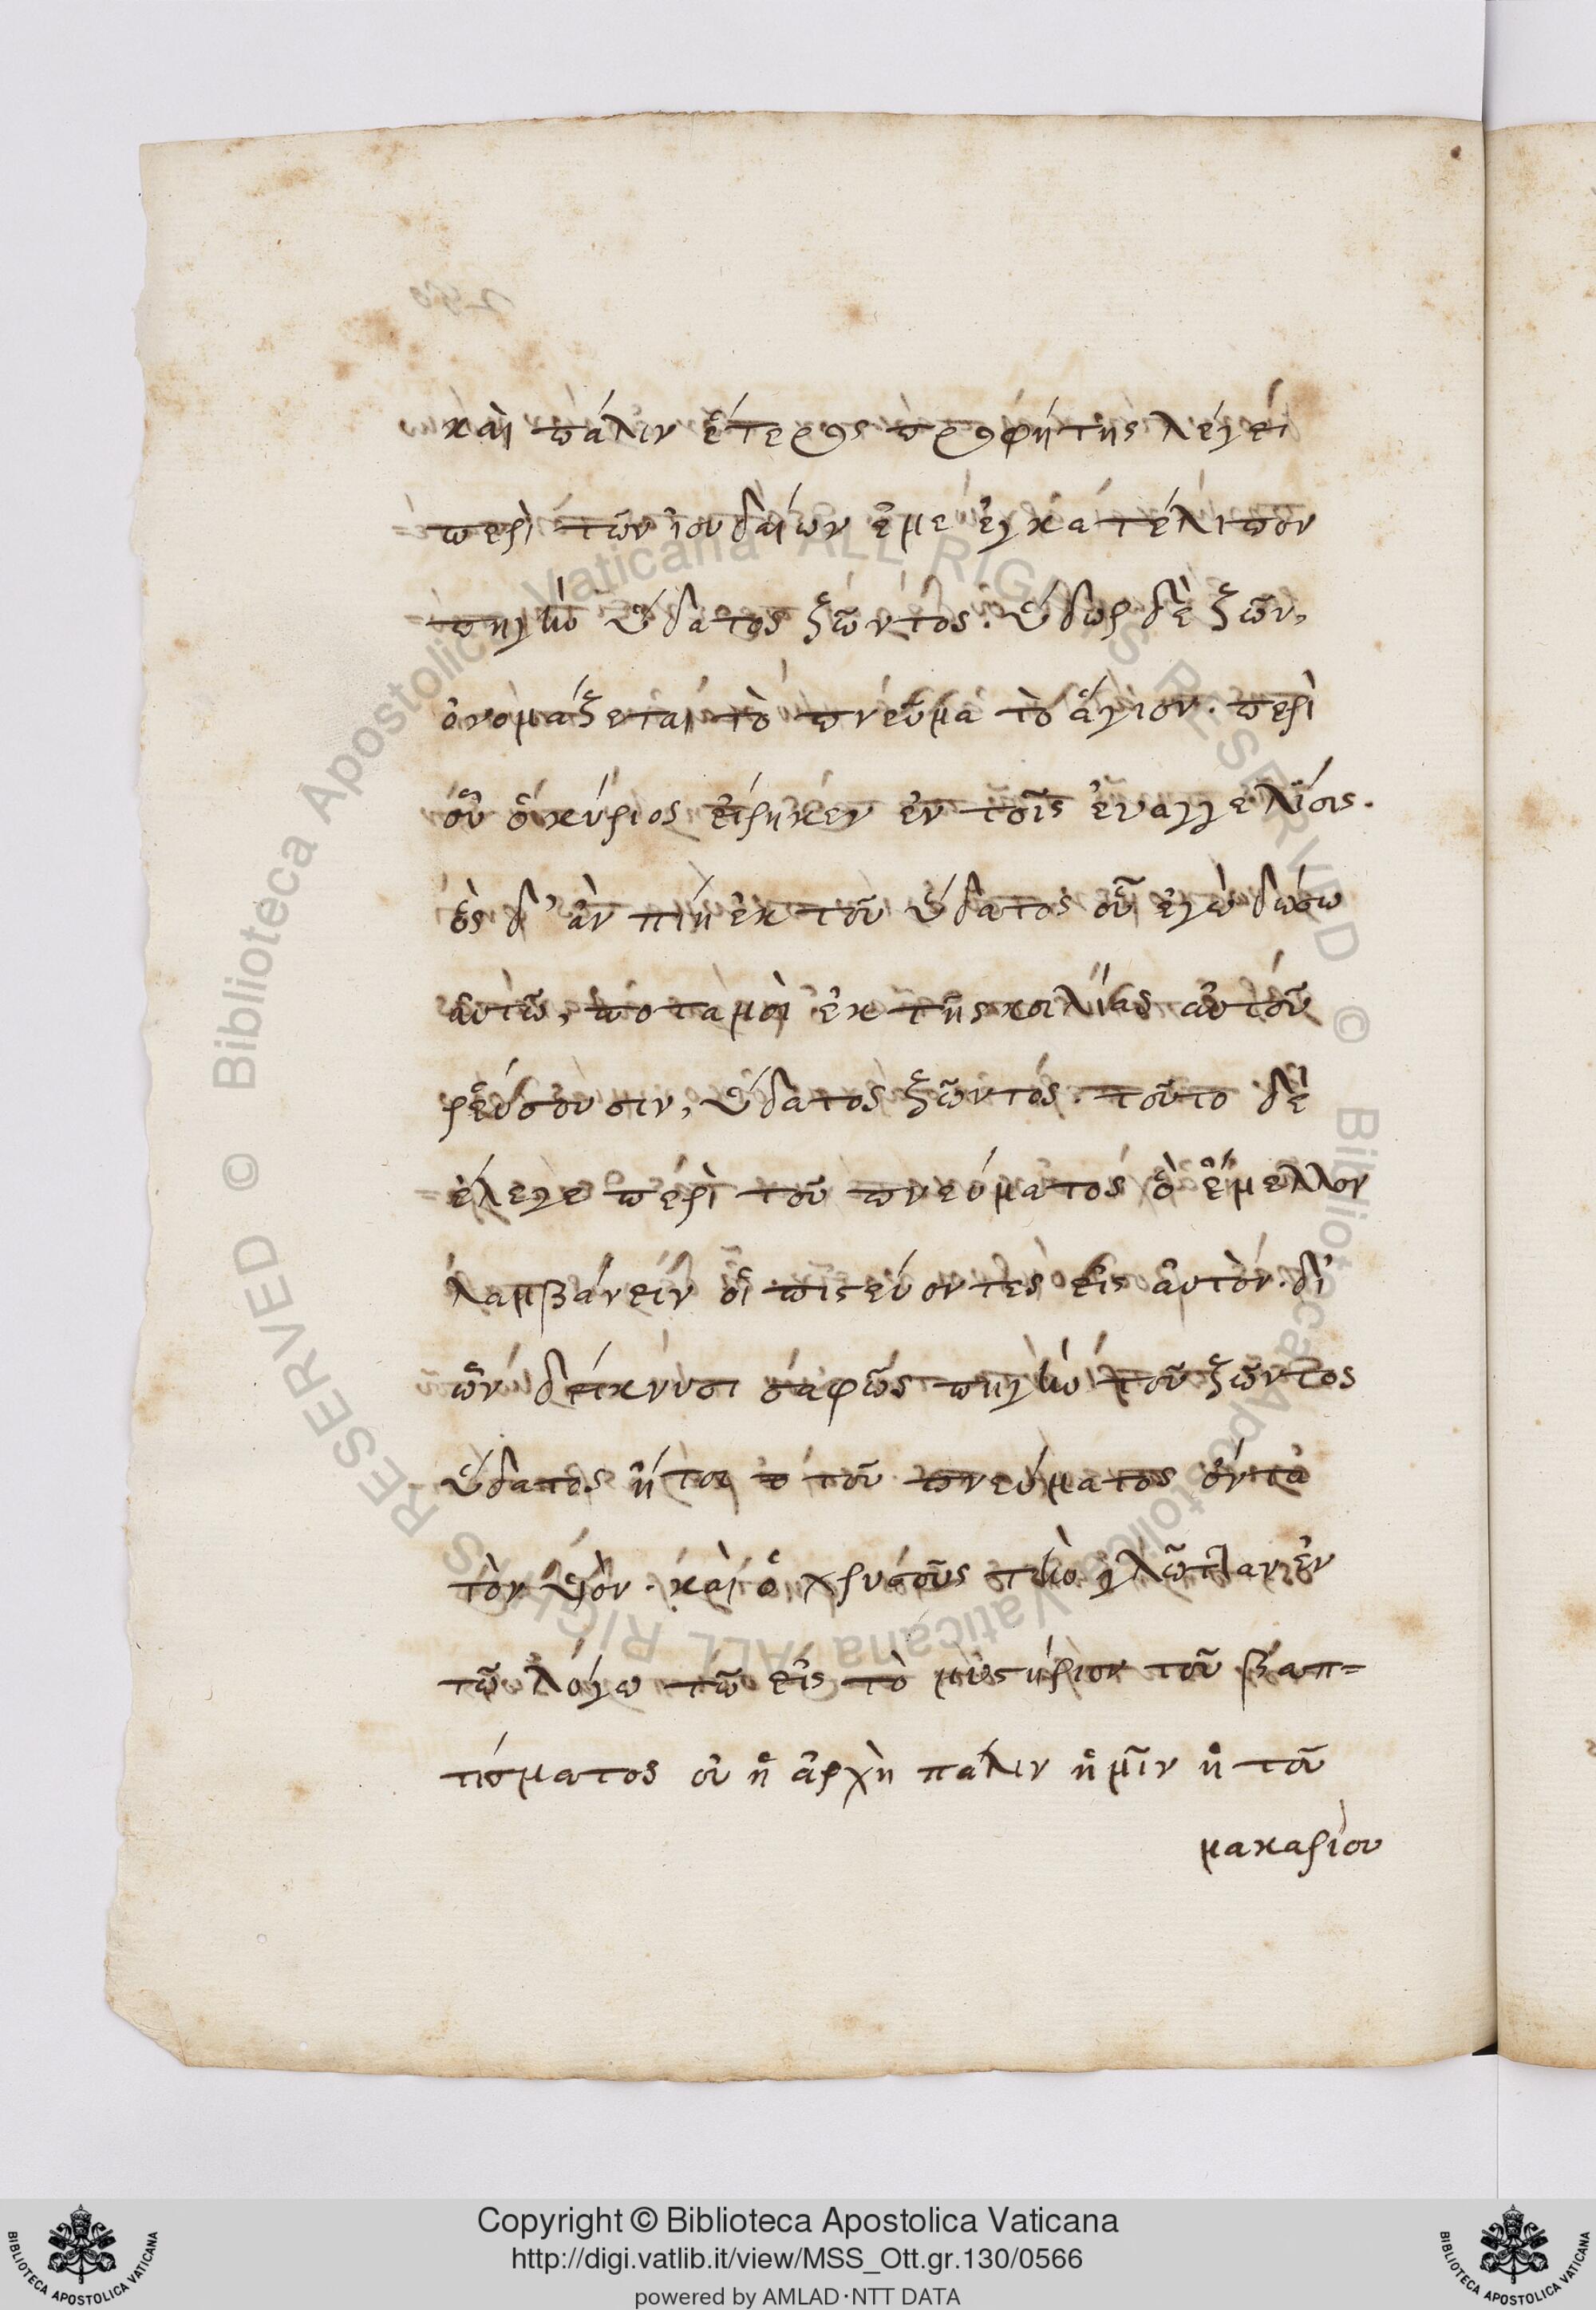 καὶ πάλιν ἕτερος προφήτης λέγει
περὶ τῶν ἰουδαίων ἐμὲ ἐγκατέλιπον
πηγὴν ὕδατος ζῶντος. ὕδωρ δὲ ζῶν,
ὀνομάζεται τὸ πνεῦμα τὸ ἅγιον. περὶ
οὗ ὁ κύριος εἴρηκεν ἐν τοῖς ἐυαγγελίοις.
ὃς δ' ἂν πίη ἐκ τοῦ ὕδατος οὗ ἐγὼ δώσω
αυτῶ, ποταμοὶ ἐκ τῆς κοιλίας αὐτοῦ
ῥεύσουσιν, ὕδατος ζῶντος. τοῦτο δὲ
ἔλεγε περὶ τοῦ πνεύματος ὃ ἔμελλον
λαμβάνειν οἱ πιστεύοντες εἰς αὐτὸν. δι'
ὧν δείκνυσι σαφῶς πηγὴν τοῦ ζῶντος
ὕδατος ἤτοι τοῦ πνεύματος ὄντα
τὸν υἱὸν. καὶ ὁ χρυσοῦς τὴν γλῶτταν ἐν
τῶ λόγω τῶ εἰς τὸ μυστήριον τοῦ βαπ=
τίσματος οὐ ἡ ἀρχὴ πάλιν ἡμῖν ἡ τοῦ
μακαρίου
Copyright © Biblioteca Apostolica Vaticana
http://digi.vatlib.it/view/MSS_Ott.gr.130/0566
powered by AMLAD·NTT DATA
BIBLIOTECA APOSTOLICA VATICANA
BIBLIOTECA APOSTOLICA VATICANA
© Biblioteca Apostolica Vaticana ALL RIGHTS RESERVED © Biblioteca Apostolica Vaticana ALL RIGHTS RESERVED